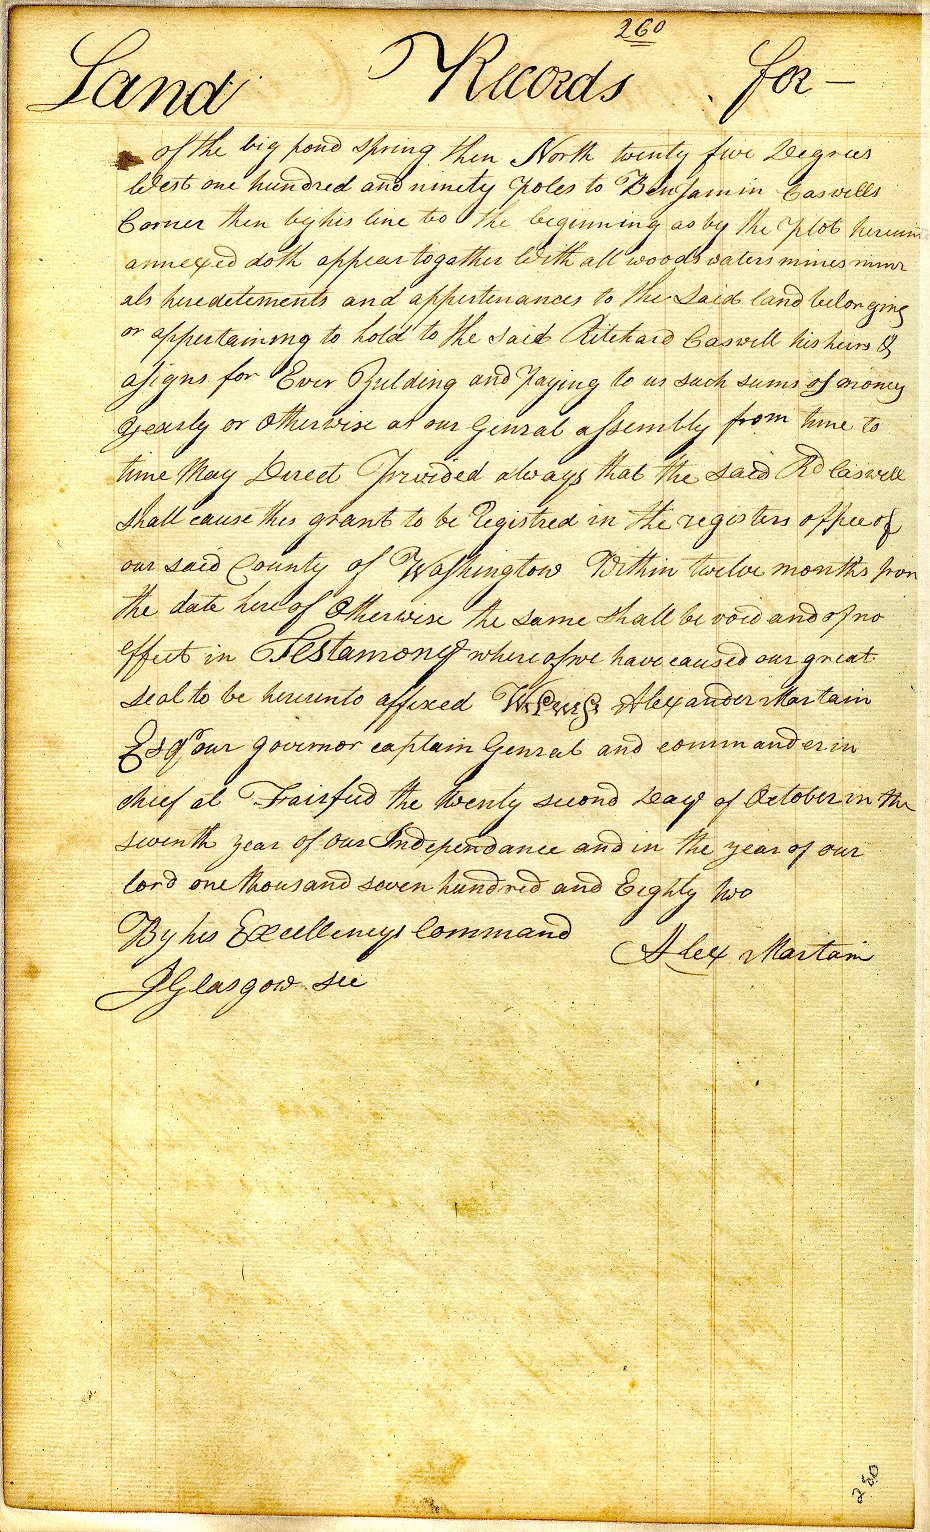 260
Land Records for —
of the big pond Spring then North twenty five Degrees
West one hundred and ninety poles to Benjamin Caswells
Corner then by his line to the beginning as by the plot hereunto
annexed doth appear togather With all woods waters mines miner
als heredetements and appertenances to the Said land belonging
or appertaining to hold to the said Ritchard Caswell his heirs &
asigns for Ever Yielding and Paying to us such sums of money
Yearly or Otherwise as our Genral assembly from time to
time May Direct Provided always that the said Rd Caswell
shall cause this grant to be Registred in the registers office of
our said County of Washington Within twelve months from
the date here of Otherwise the same shall be void and of no
effect in Testamony where of we have caused our great
seal to be hereunto affixed Alexander Martain
Esqr our governor captain Genral and commander in
chief at the twenty second Day of October in the
seventh year of our Independance and in the year of our
lord one thousand seven hundred and Eighty two
By his Excellencys Command
Alex Martain
J Glasgow sec